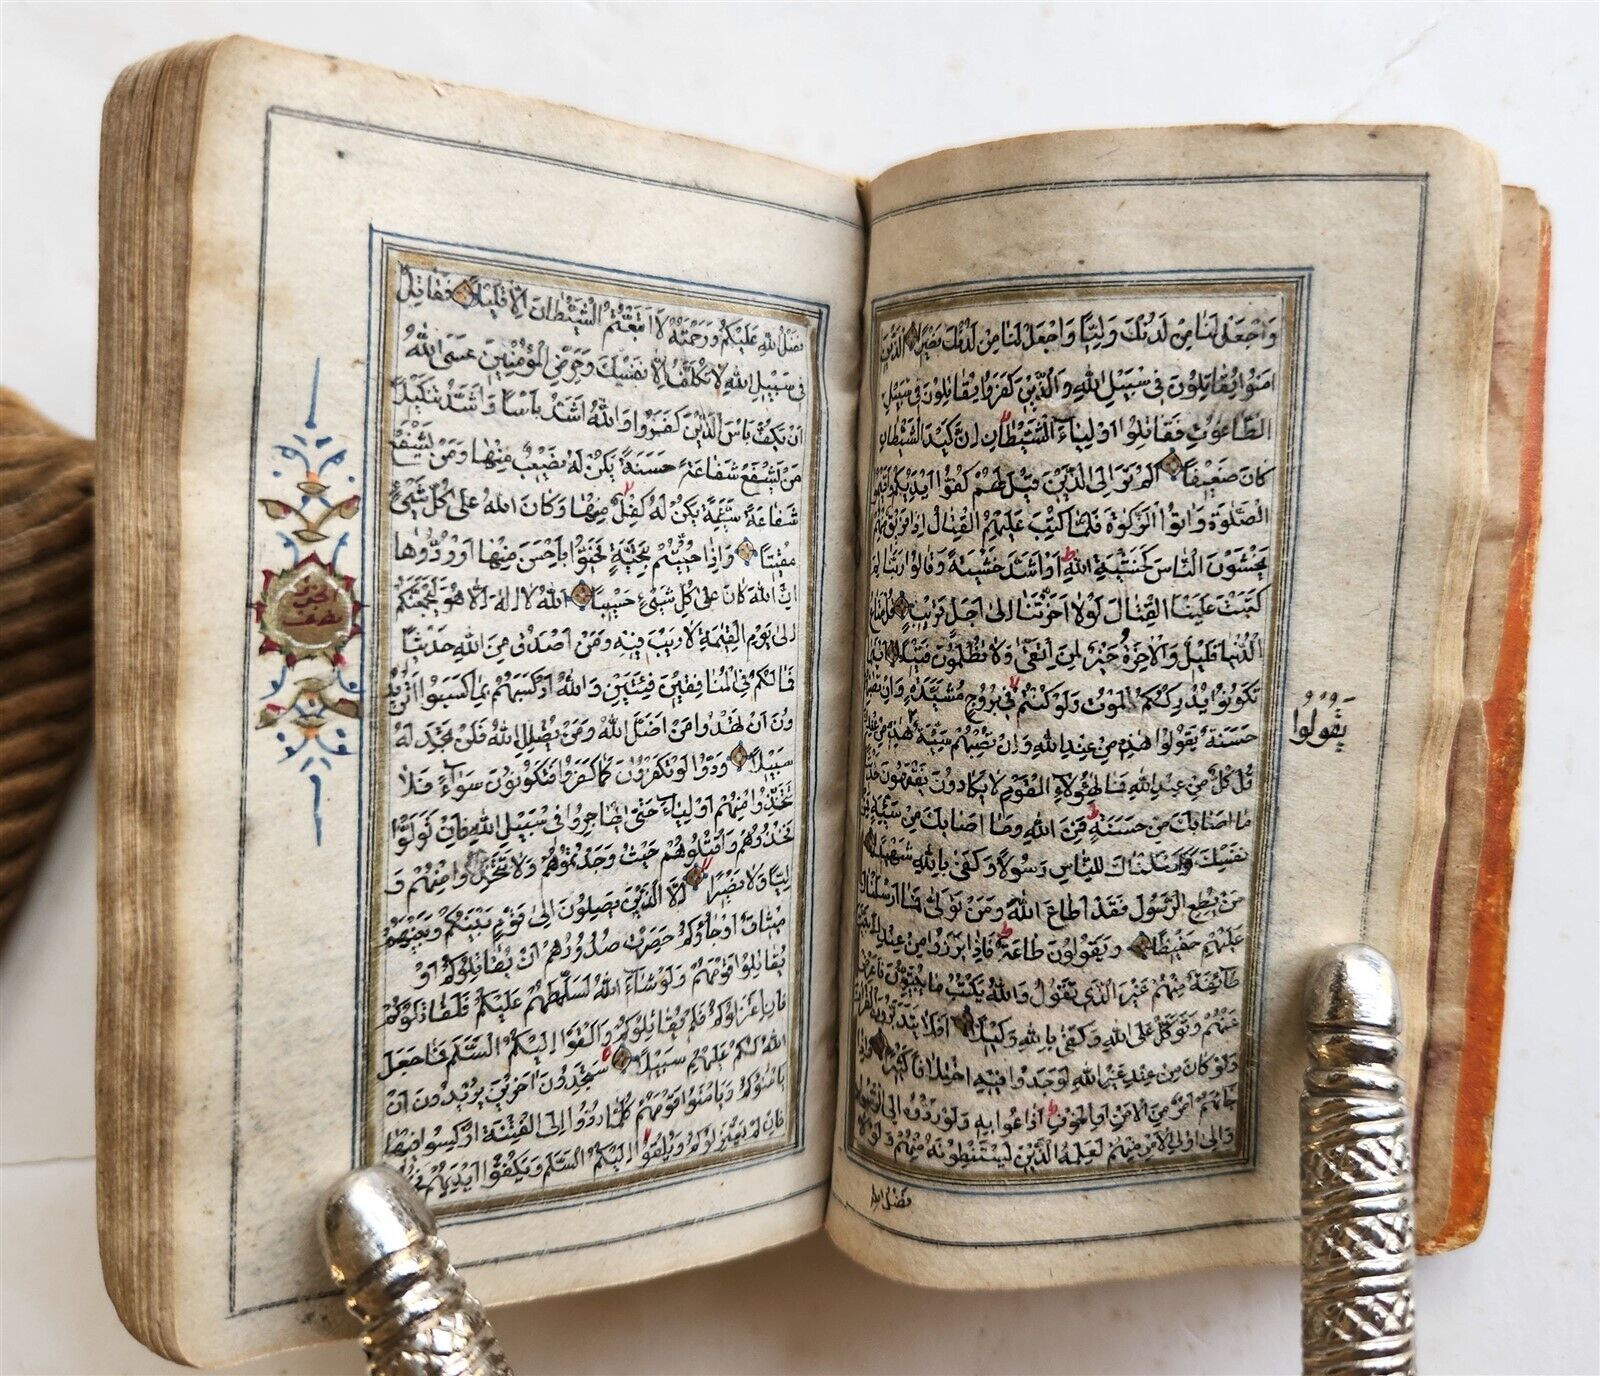 وَاجْعَلْ لَنَا مِنْ لَدُنْكَ وَلِيًّا وَاجْعَلْ لَنَا مِنْ لَدُنْكَ نَصِيرًا الَّذِينَ
اٰمَنُوا يُقَاتِلُونَ فِي سَبِيلِ اللّٰهِ وَالَّذِينَ كَفَرُوا يُقَاتِلُونَ فِي سَبِيلِ
الطَّاغُوتِ فَقَاتِلُوا اَوْلِيَاءَ الشَّيْطَانِ اِنَّ كَيْدَ الشَّيْطَانِ
كَانَ ضَعِيفًا اَلَمْ تَرَ اِلَى الَّذِينَ قِيلَ لَهُمْ كُفُّوا اَيْدِيَكُمْ وَاَقِيمُوا
الصَّلٰوةَ وَاٰتُوا الزَّكٰوةَ فَلَمَّا كُتِبَ عَلَيْهِمُ الْقِتَالُ اِذَا فَرِيقٌ مِنْهُمْ
يَخْشَوْنَ النَّاسَ كَخَشْيَةِ اللّٰهِ اَوْ اَشَدَّ خَشْيَةً وَقَالُوا رَبَّنَا لِمَ
كَتَبْتَ عَلَيْنَا الْقِتَالَ لَوْلَا اَخَّرْتَنَا اِلٰى اَجَلٍ قَرِيبٍ قُلْ مَتَاعُ
الدُّنْيَا قَلِيلٌ وَالْاٰخِرَةُ خَيْرٌ لِمَنِ اتَّقٰى وَلَا تُظْلَمُونَ فَتِيلًا اَيْنَمَا
تَكُونُوا يُدْرِكْكُمُ الْمَوْتُ وَلَوْ كُنْتُمْ فِي بُرُوجٍ مُشَيَّدَةٍ وَاِنْ تُصِبْهُمْ
يَقُولُوا
حَسَنَةٌ يَقُولُوا هٰذِهِ مِنْ عِنْدِ اللّٰهِ وَاِنْ تُصِبْهُمْ سَيِّئَةٌ هٰذِهِ مِنْ عِنْدِكَ
قُلْ كُلٌّ مِنْ عِنْدِ اللّٰهِ فَمَالِ هٰؤُلَاءِ الْقَوْمِ لَا يَكَادُونَ يَفْقَهُونَ حَدِيثًا
مَا اَصَابَكَ مِنْ حَسَنَةٍ فَمِنَ اللّٰهِ وَمَا اَصَابَكَ مِنْ سَيِّئَةٍ فَمِنْ
نَفْسِكَ وَاَرْسَلْنَاكَ لِلنَّاسِ رَسُولًا وَكَفٰى بِاللّٰهِ شَهِيدًا
مَنْ يُطِعِ الرَّسُولَ فَقَدْ اَطَاعَ اللّٰهَ وَمَنْ تَوَلّٰى فَمَا اَرْسَلْنَاكَ
عَلَيْهِمْ حَفِيظًا وَيَقُولُونَ طَاعَةٌ فَاِذَا بَرَزُوا مِنْ عِنْدِكَ بَيَّتَ
طَائِفَةٌ مِنْهُمْ غَيْرَ الَّذِي تَقُولُ وَاللّٰهُ يَكْتُبُ مَا يُبَيِّتُونَ فَاَعْرِضْ
عَنْهُمْ وَتَوَكَّلْ عَلَى اللّٰهِ وَكَفٰى بِاللّٰهِ وَكِيلًا اَفَلَا يَتَدَبَّرُونَ الْقُرْاٰنَ
وَلَوْ كَانَ مِنْ عِنْدِ غَيْرِ اللّٰهِ لَوَجَدُوا فِيهِ اخْتِلَافًا كَثِيرًا وَاِذَا
جَاءَهُمْ اَمْرٌ مِنَ الْاَمْنِ اَوِ الْخَوْفِ اَذَاعُوا بِهِ وَلَوْ رَدُّوهُ اِلَى الرَّسُولِ
وَاِلٰى اُولِي الْاَمْرِ مِنْهُمْ لَعَلِمَهُ الَّذِينَ يَسْتَنْبِطُونَهُ مِنْهُمْ وَلَوْلَا
فضل الله
فَضْلُ اللّٰهِ عَلَيْكُمْ وَرَحْمَتُهُ لَاتَّبَعْتُمُ الشَّيْطَانَ اِلَّا قَلِيلًا فَقَاتِلْ
فِي سَبِيلِ اللّٰهِ لَا تُكَلَّفُ اِلَّا نَفْسَكَ وَحَرِّضِ الْمُؤْمِنِينَ عَسَى اللّٰهُ
اَنْ يَكُفَّ بَاْسَ الَّذِينَ كَفَرُوا وَاللّٰهُ اَشَدُّ بَاْسًا وَاَشَدُّ تَنْكِيلًا
مَنْ يَشْفَعْ شَفَاعَةً حَسَنَةً يَكُنْ لَهُ نَصِيبٌ مِنْهَا وَمَنْ يَشْفَعْ
شَفَاعَةً سَيِّئَةً يَكُنْ لَهُ كِفْلٌ مِنْهَا وَكَانَ اللّٰهُ عَلٰى كُلِّ شَيْءٍ
مُقِيتًا وَاِذَا حُيِّيتُمْ بِتَحِيَّةٍ فَحَيُّوا بِاَحْسَنَ مِنْهَا اَوْ رُدُّوهَا
اِنَّ اللّٰهَ كَانَ عَلٰى كُلِّ شَيْءٍ حَسِيبًا اَللّٰهُ لَا اِلٰهَ اِلَّا هُوَ لَيَجْمَعَنَّكُمْ
اِلٰى يَوْمِ الْقِيٰمَةِ لَا رَيْبَ فِيهِ وَمَنْ اَصْدَقُ مِنَ اللّٰهِ حَدِيثًا
فَمَا لَكُمْ فِي الْمُنَافِقِينَ فِئَتَيْنِ وَاللّٰهُ اَرْكَسَهُمْ بِمَا كَسَبُوا اَتُرِيدُ
ونَ اَنْ تَهْدُوا مَنْ اَضَلَّ اللّٰهُ وَمَنْ يُضْلِلِ اللّٰهُ فَلَنْ تَجِدَ لَهُ
سَبِيلًا وَدُّوا لَوْ تَكْفُرُونَ كَمَا كَفَرُوا فَتَكُونُونَ سَوَاءً فَلَا
تَتَّخِذُوا مِنْهُمْ اَوْلِيَاءَ حَتّٰى يُهَاجِرُوا فِي سَبِيلِ اللّٰهِ فَاِنْ تَوَلَّوْا
فَخُذُوهُمْ وَاقْتُلُوهُمْ حَيْثُ وَجَدْتُمُوهُمْ وَلَا تَتَّخِذُوا مِنْهُمْ وَ
لِيًّا وَلَا نَصِيرًا اِلَّا الَّذِينَ يَصِلُونَ اِلٰى قَوْمٍ بَيْنَكُمْ وَبَيْنَهُمْ
مِيثَاقٌ اَوْ جَاؤُكُمْ حَصِرَتْ صُدُورُهُمْ اَنْ يُقَاتِلُوكُمْ اَوْ
يُقَاتِلُوا قَوْمَهُمْ وَلَوْ شَاءَ اللّٰهُ لَسَلَّطَهُمْ عَلَيْكُمْ فَلَقَاتَلُوكُمْ
فَاِنِ اعْتَزَلُوكُمْ فَلَمْ يُقَاتِلُوكُمْ وَاَلْقَوْا اِلَيْكُمُ السَّلَمَ فَمَا جَعَلَ
اللّٰهُ لَكُمْ عَلَيْهِمْ سَبِيلًا سَتَجِدُونَ اٰخَرِينَ يُرِيدُونَ اَنْ
يَاْمَنُوكُمْ وَيَاْمَنُوا قَوْمَهُمْ كُلَّمَا رُدُّوا اِلَى الْفِتْنَةِ اُرْكِسُوا فِيهَا
فَاِنْ لَمْ يَعْتَزِلُوكُمْ وَيُلْقُوا اِلَيْكُمُ السَّلَمَ وَيَكُفُّوا اَيْدِيَهُمْ
الحزب
نصف